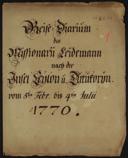 Reise-Diarium
des
Missionarii Leidemann
nach der
Insel Ceylon u. Tutucoryn.
vom 5ten Febr. bis 4ten Julii
1770.